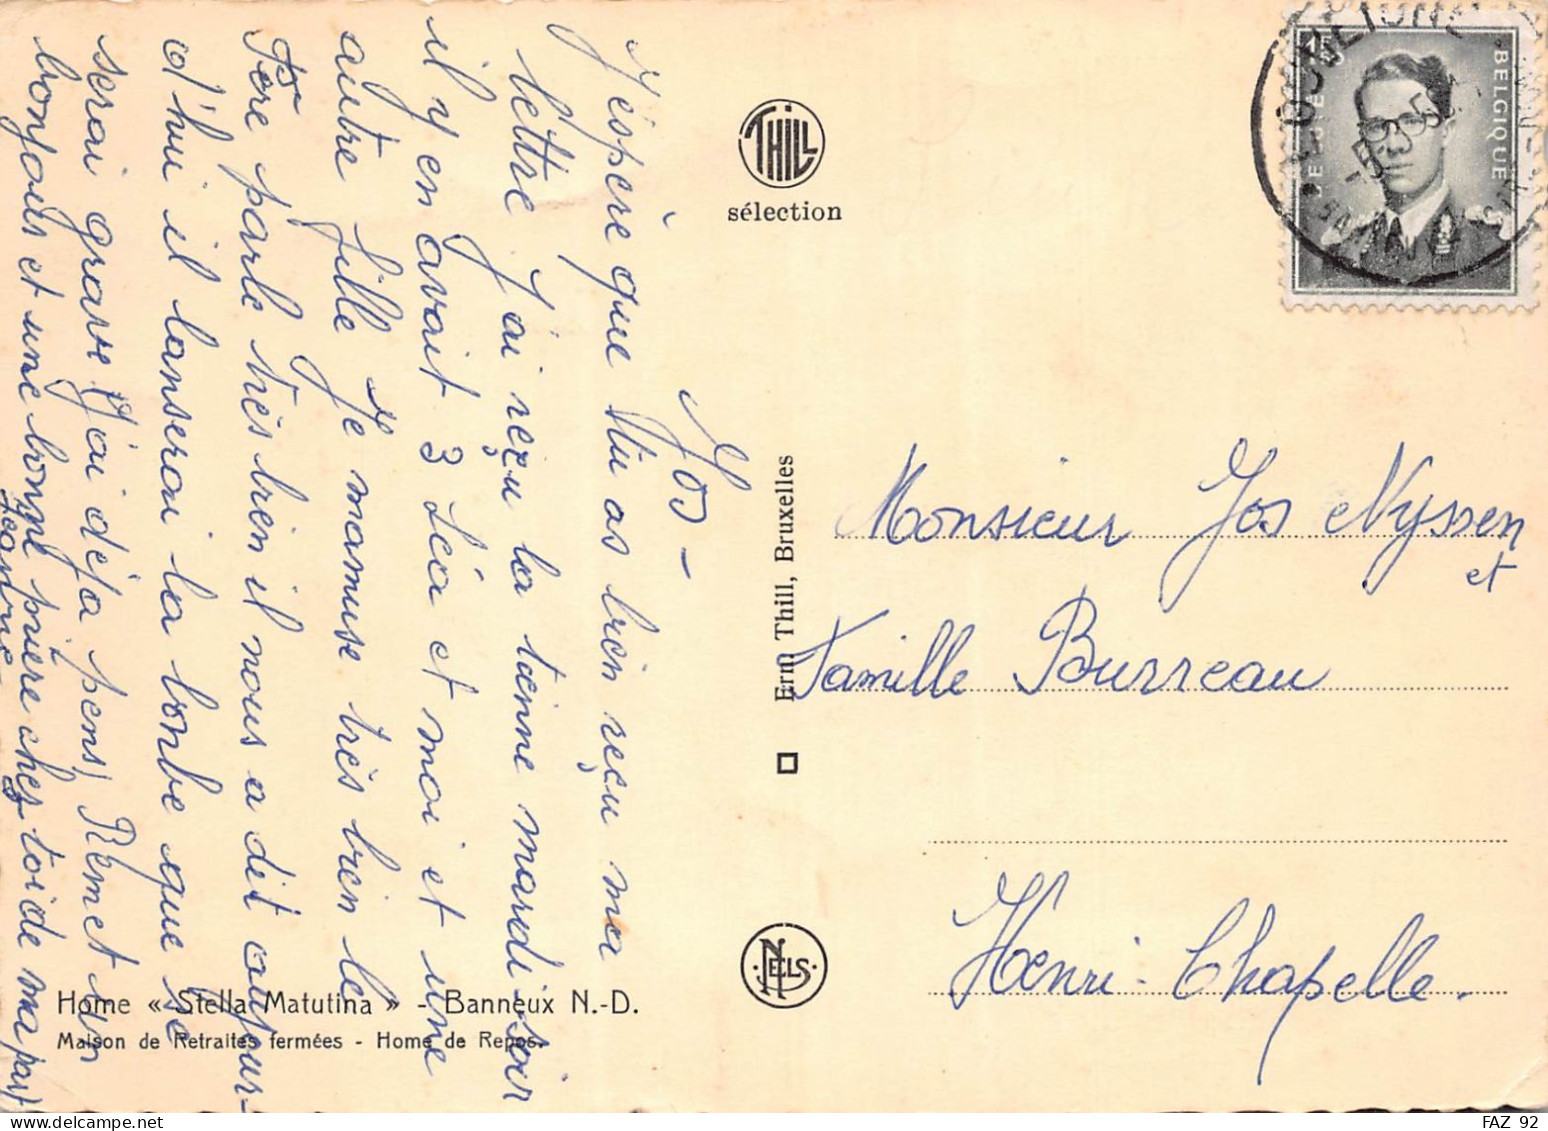 Jos -
J'espère que tu as bien reçu ma
lettre J'ai reçu la tienne mardi soir
il y en avait 3 Léa et moi et une
autre fille Je m'amuse très bien le
Père parle très bien il nous a dit aujour-
d'hui il lanserai la bonbe que se
serai grave (J'ai déja pens) Remet un
bonjours et une bonne prière chez toi de ma part
Jeanne
THILL
sélection
Erm. Thill, Bruxelles
NELS
BELGIQUE
BELGIE
Monsieur Jos Nyssen
et
Famille Burreau
Henri-Chapelle.
Home « Stella Matutina » - Banneux N.-D.
Maison de Retraites fermées - Home de Repos.
FAZ 92